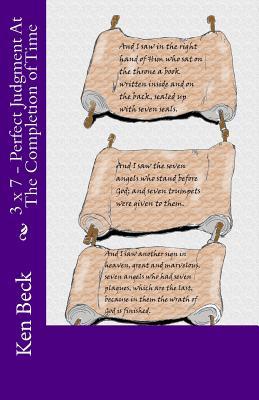 3 x 7 - Perfect Judgment At
The Completion of Time
Ken Beck
And I saw in the right
hand of Him who sat on
the throne a book
written inside and on
the back, sealed up
with seven seals.
And I saw the seven
angels who stand before
God; and seven trumpets
were given to them.
And I saw another sign in
heaven, great and marvelous,
seven angels who had seven
plagues, which are the last,
because in them the wrath of
God is finished.